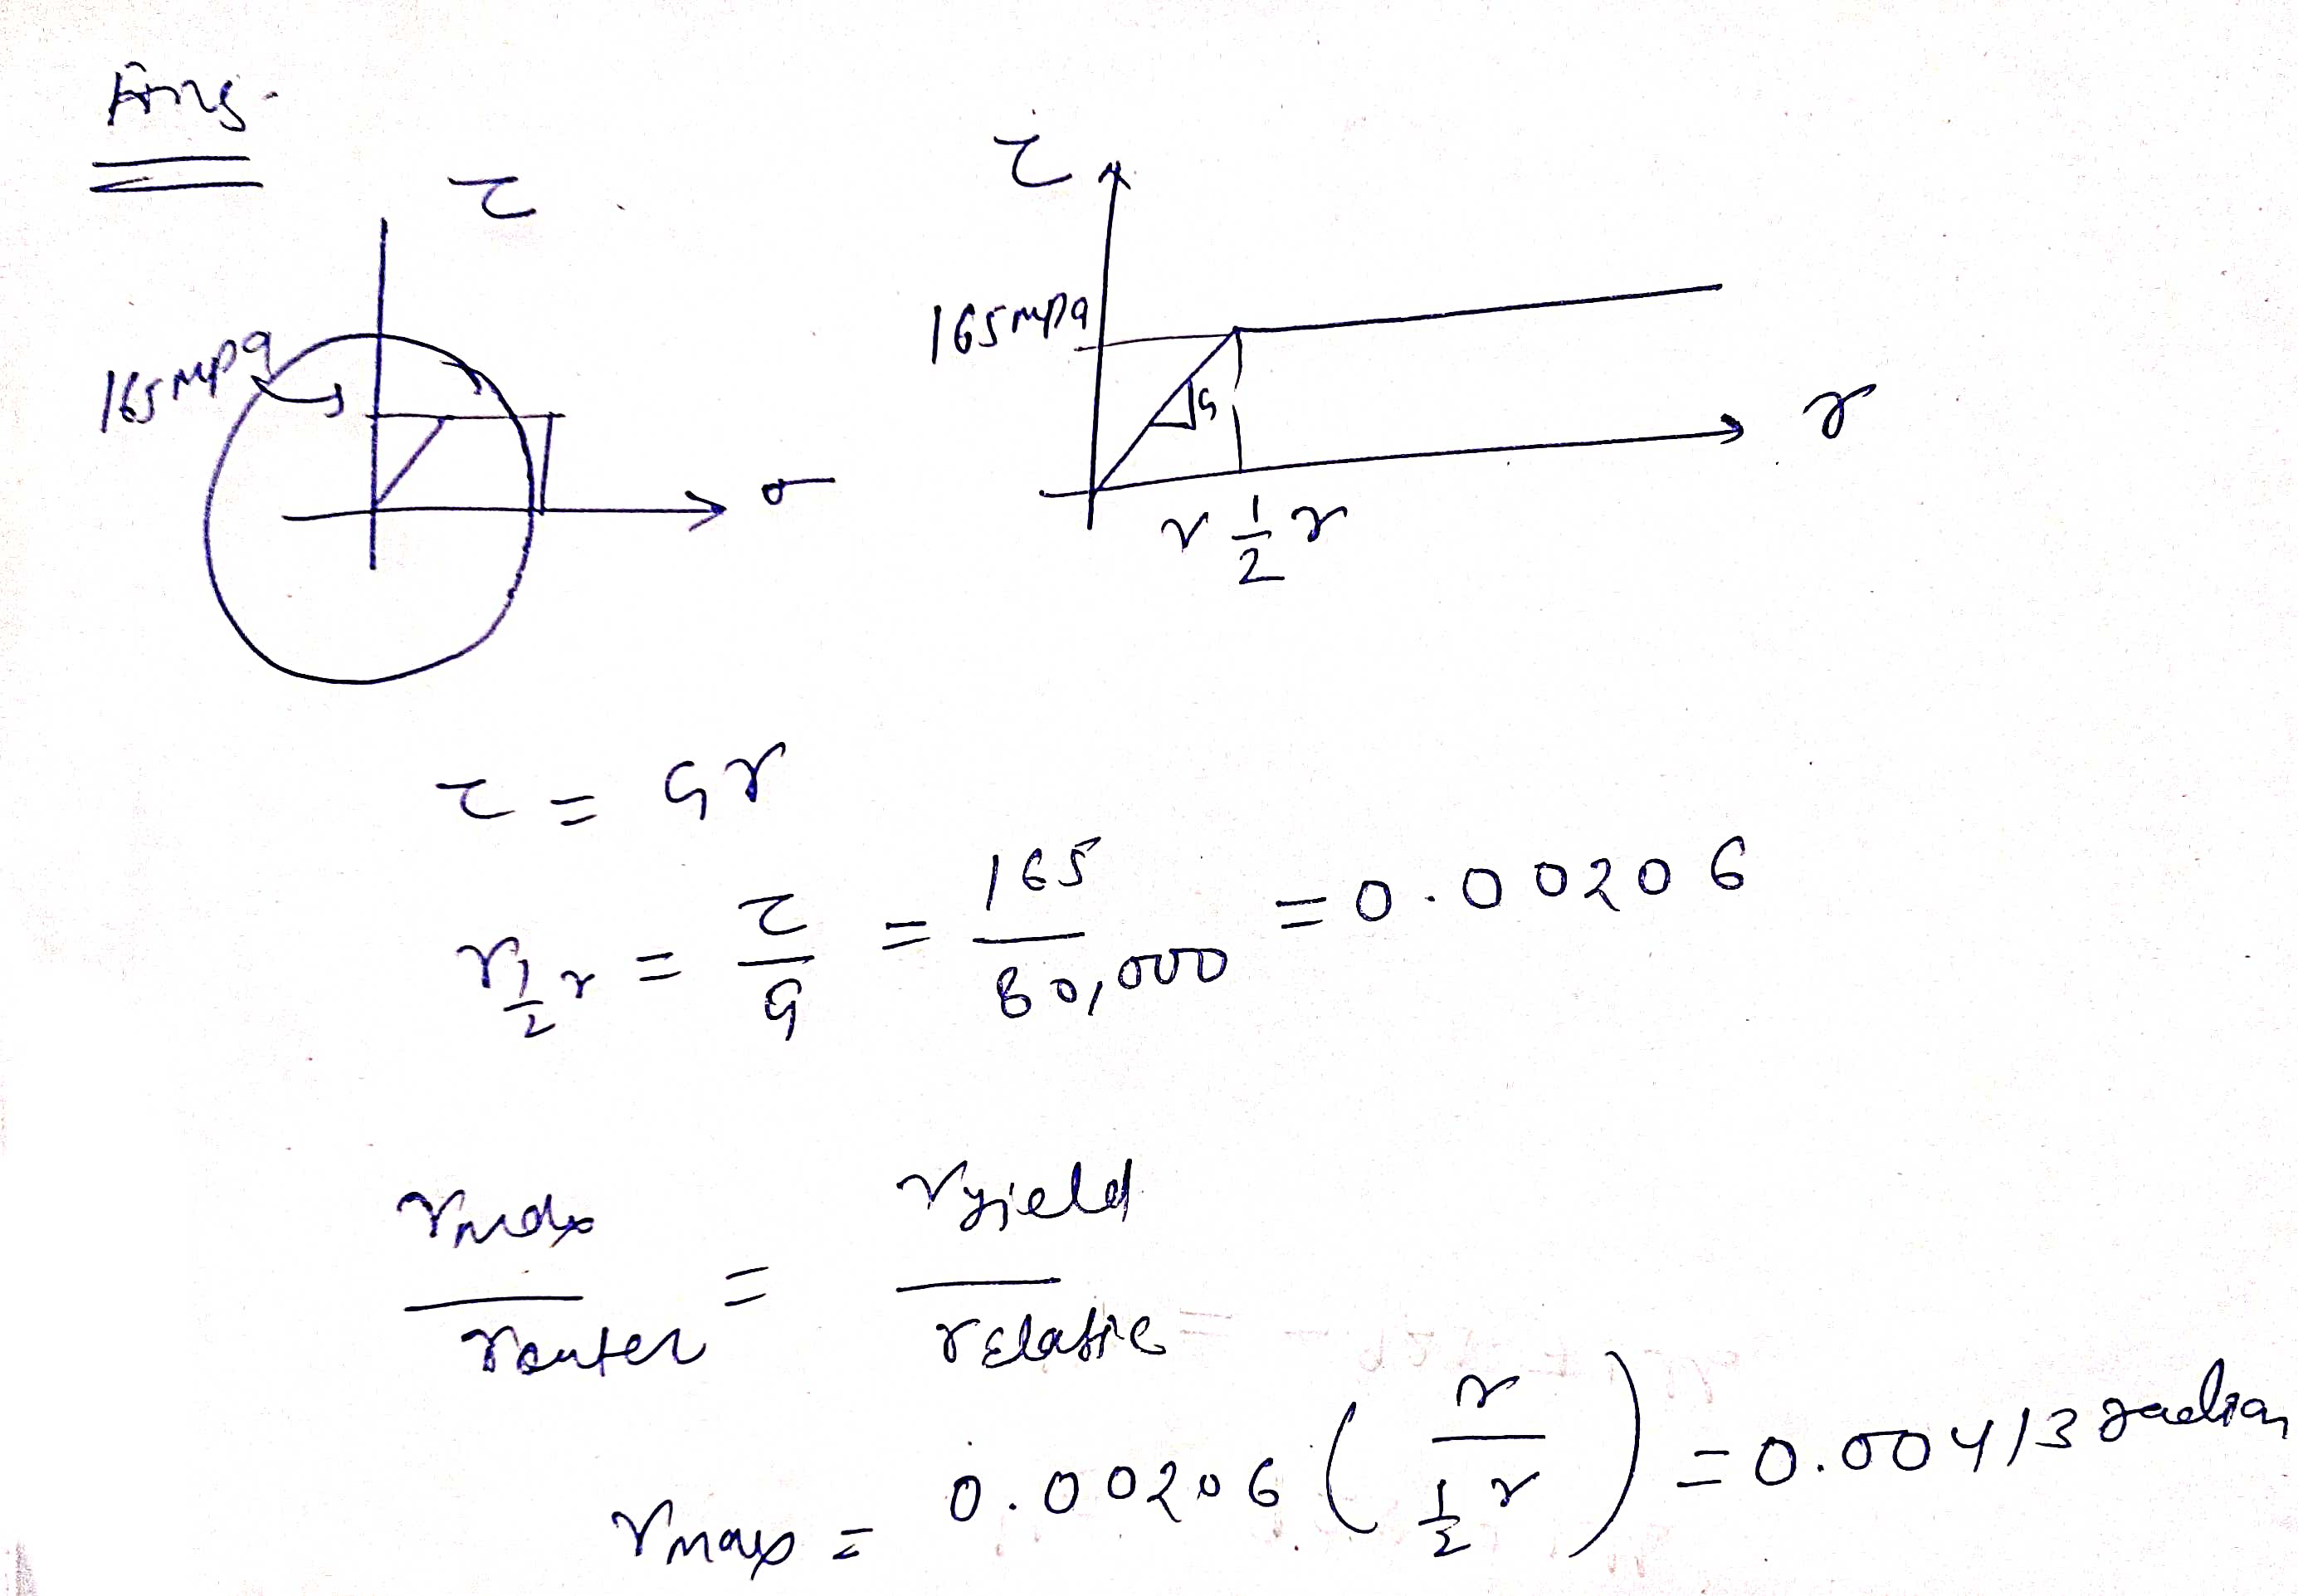 Ans.
τ
τ
165 MPa
165 MPa
G
σ
γ
γ 1/2 r
τ = Gγ
γ 1/2 r = τ/G = 165/80,000 = 0.00206
γmax/router = γyield/relastic
γmax = 0.00206 ( r / (1/2 r) ) = 0.00413 radian